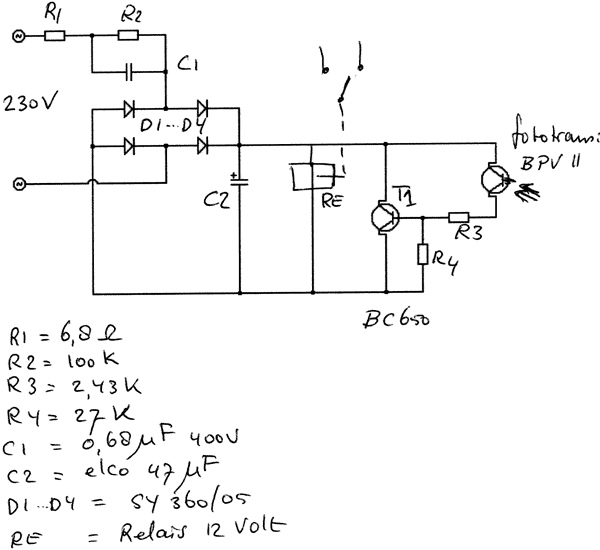 R1
R2
C1
230V
D1...D4
fototransi
BPV 11
C2
RE
T1
R3
R4
BC650
R1 = 6,8 Ω
R2 = 100 K
R3 = 2,43 K
R4 = 27 K
C1 = 0,68 µF 400V
C2 = elco 47 µF
D1...D4 = SY 360/05
RE = Relais 12 Volt